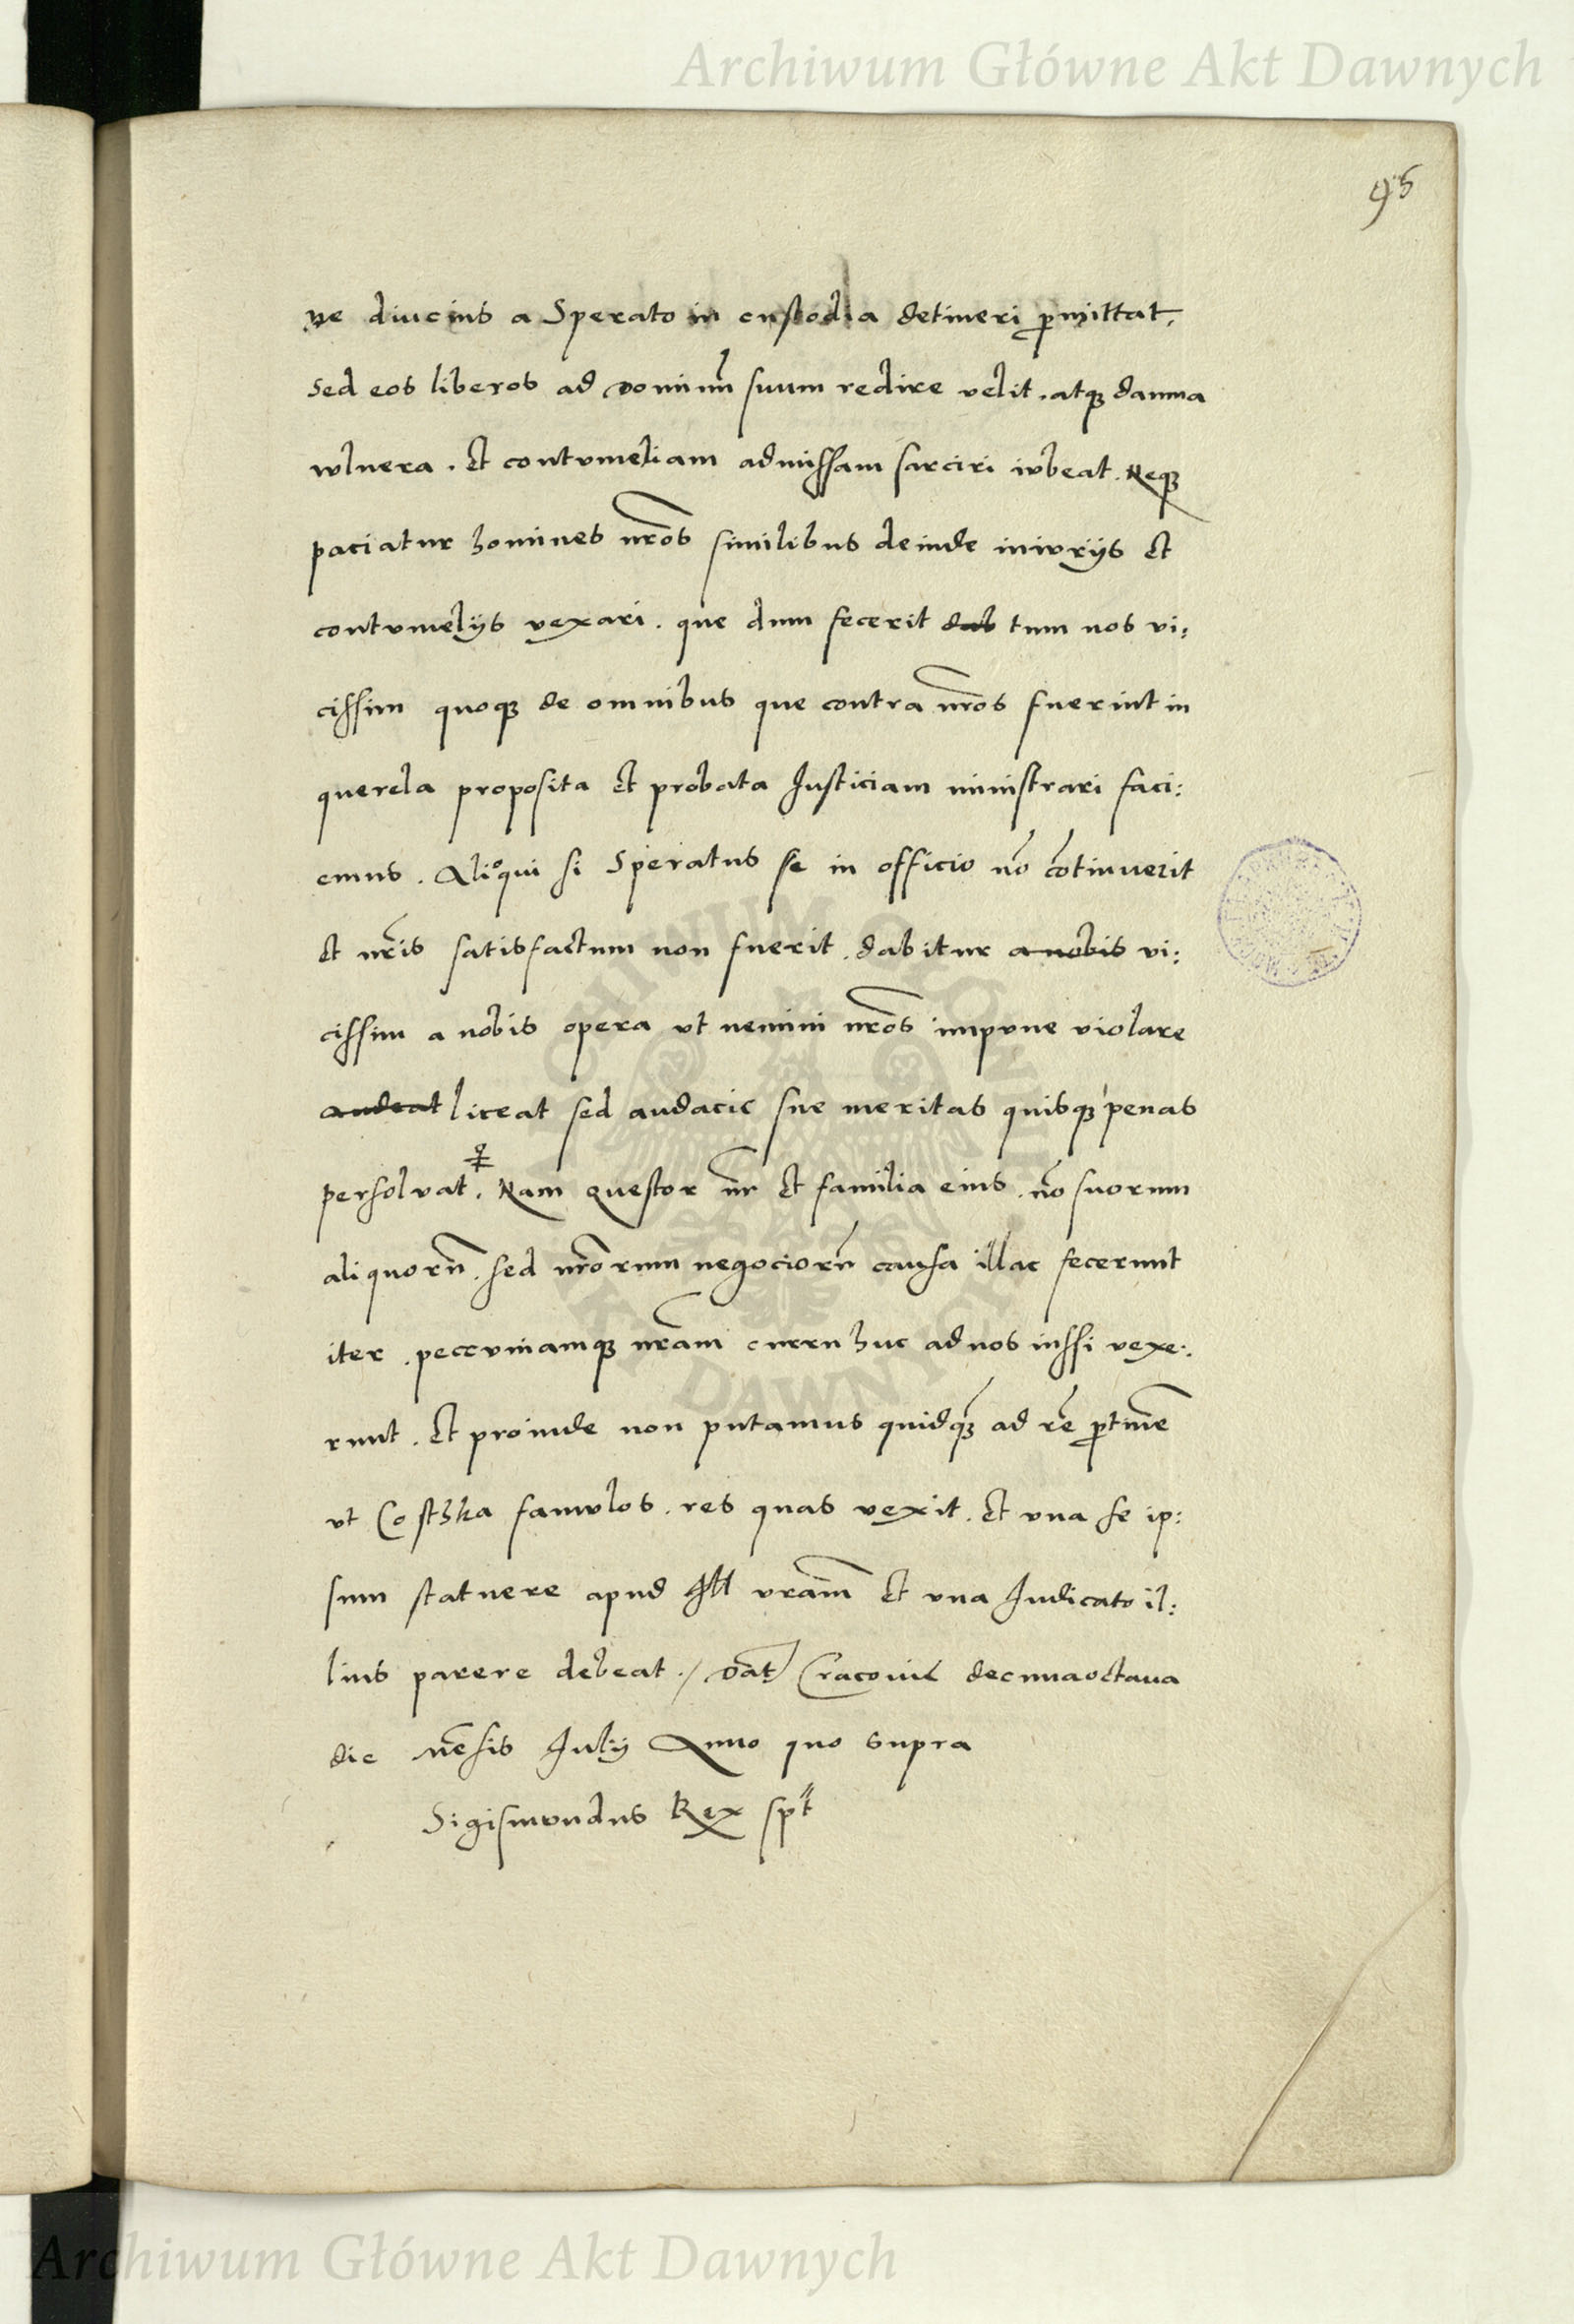 Archiwum Główne Akt Dawnych
95
ne diucius a Sperato in custodia detineri p̱mittat,
sed eos liberos ad dominū suum redire velit. atqꝫ damna
wlnera. et contumeliam admissam sarciri iubeat. Neqꝫ
paciatur homines nr̃os similibus deinde iniurijs et
contumelijs vexari. que dum fecerit dab tum nos vi:
cissim quoqꝫ de omnibus que contra nr̃os fuerint in
querela proposita et probata Justiciam ministrari faci:
emus. Alioqui si Speratus se in officio nō cōtinuerit
et nr̃is satisfactum non fuerit. dabitur a nobis vi:
cissim a nobis opera ut nemini nr̃os impune violare
audeat liceat sed audacie sue meritas quisqꝫ penas
persolvat. Nam questor nr̃ et familia eius. nō suorum
aliquorū. sed nr̃orum negociorū causa illac fecerunt
iter. peccuniamqꝫ nr̃am curru huc ad nos iussi vexe:
runt. Et proinde non putamus quidqꝫ̄ ad rē p̱tine͂
ut Costhka famulos. res quas vexit. et una se ip:
sum statuere apud Ill vr̃am et una Judicato il:
lius parere debeat. / Dat̃ Cracovie decimaoctava
die mēsis Julij Anno quo supra
Sigismundus Rex sp̃t
ARCHIWUM GŁÓWNE
AKT DAWNYCH
Archiwum Główne Akt Dawnych